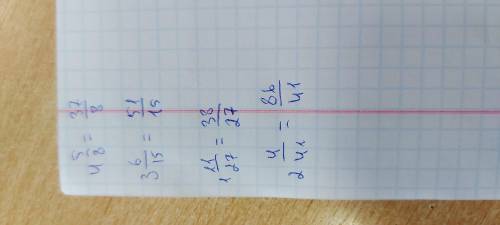 4 5/8 = 37/8
3 6/15 = 51/15
1 11/27 = 38/27
2 4/41 = 86/41